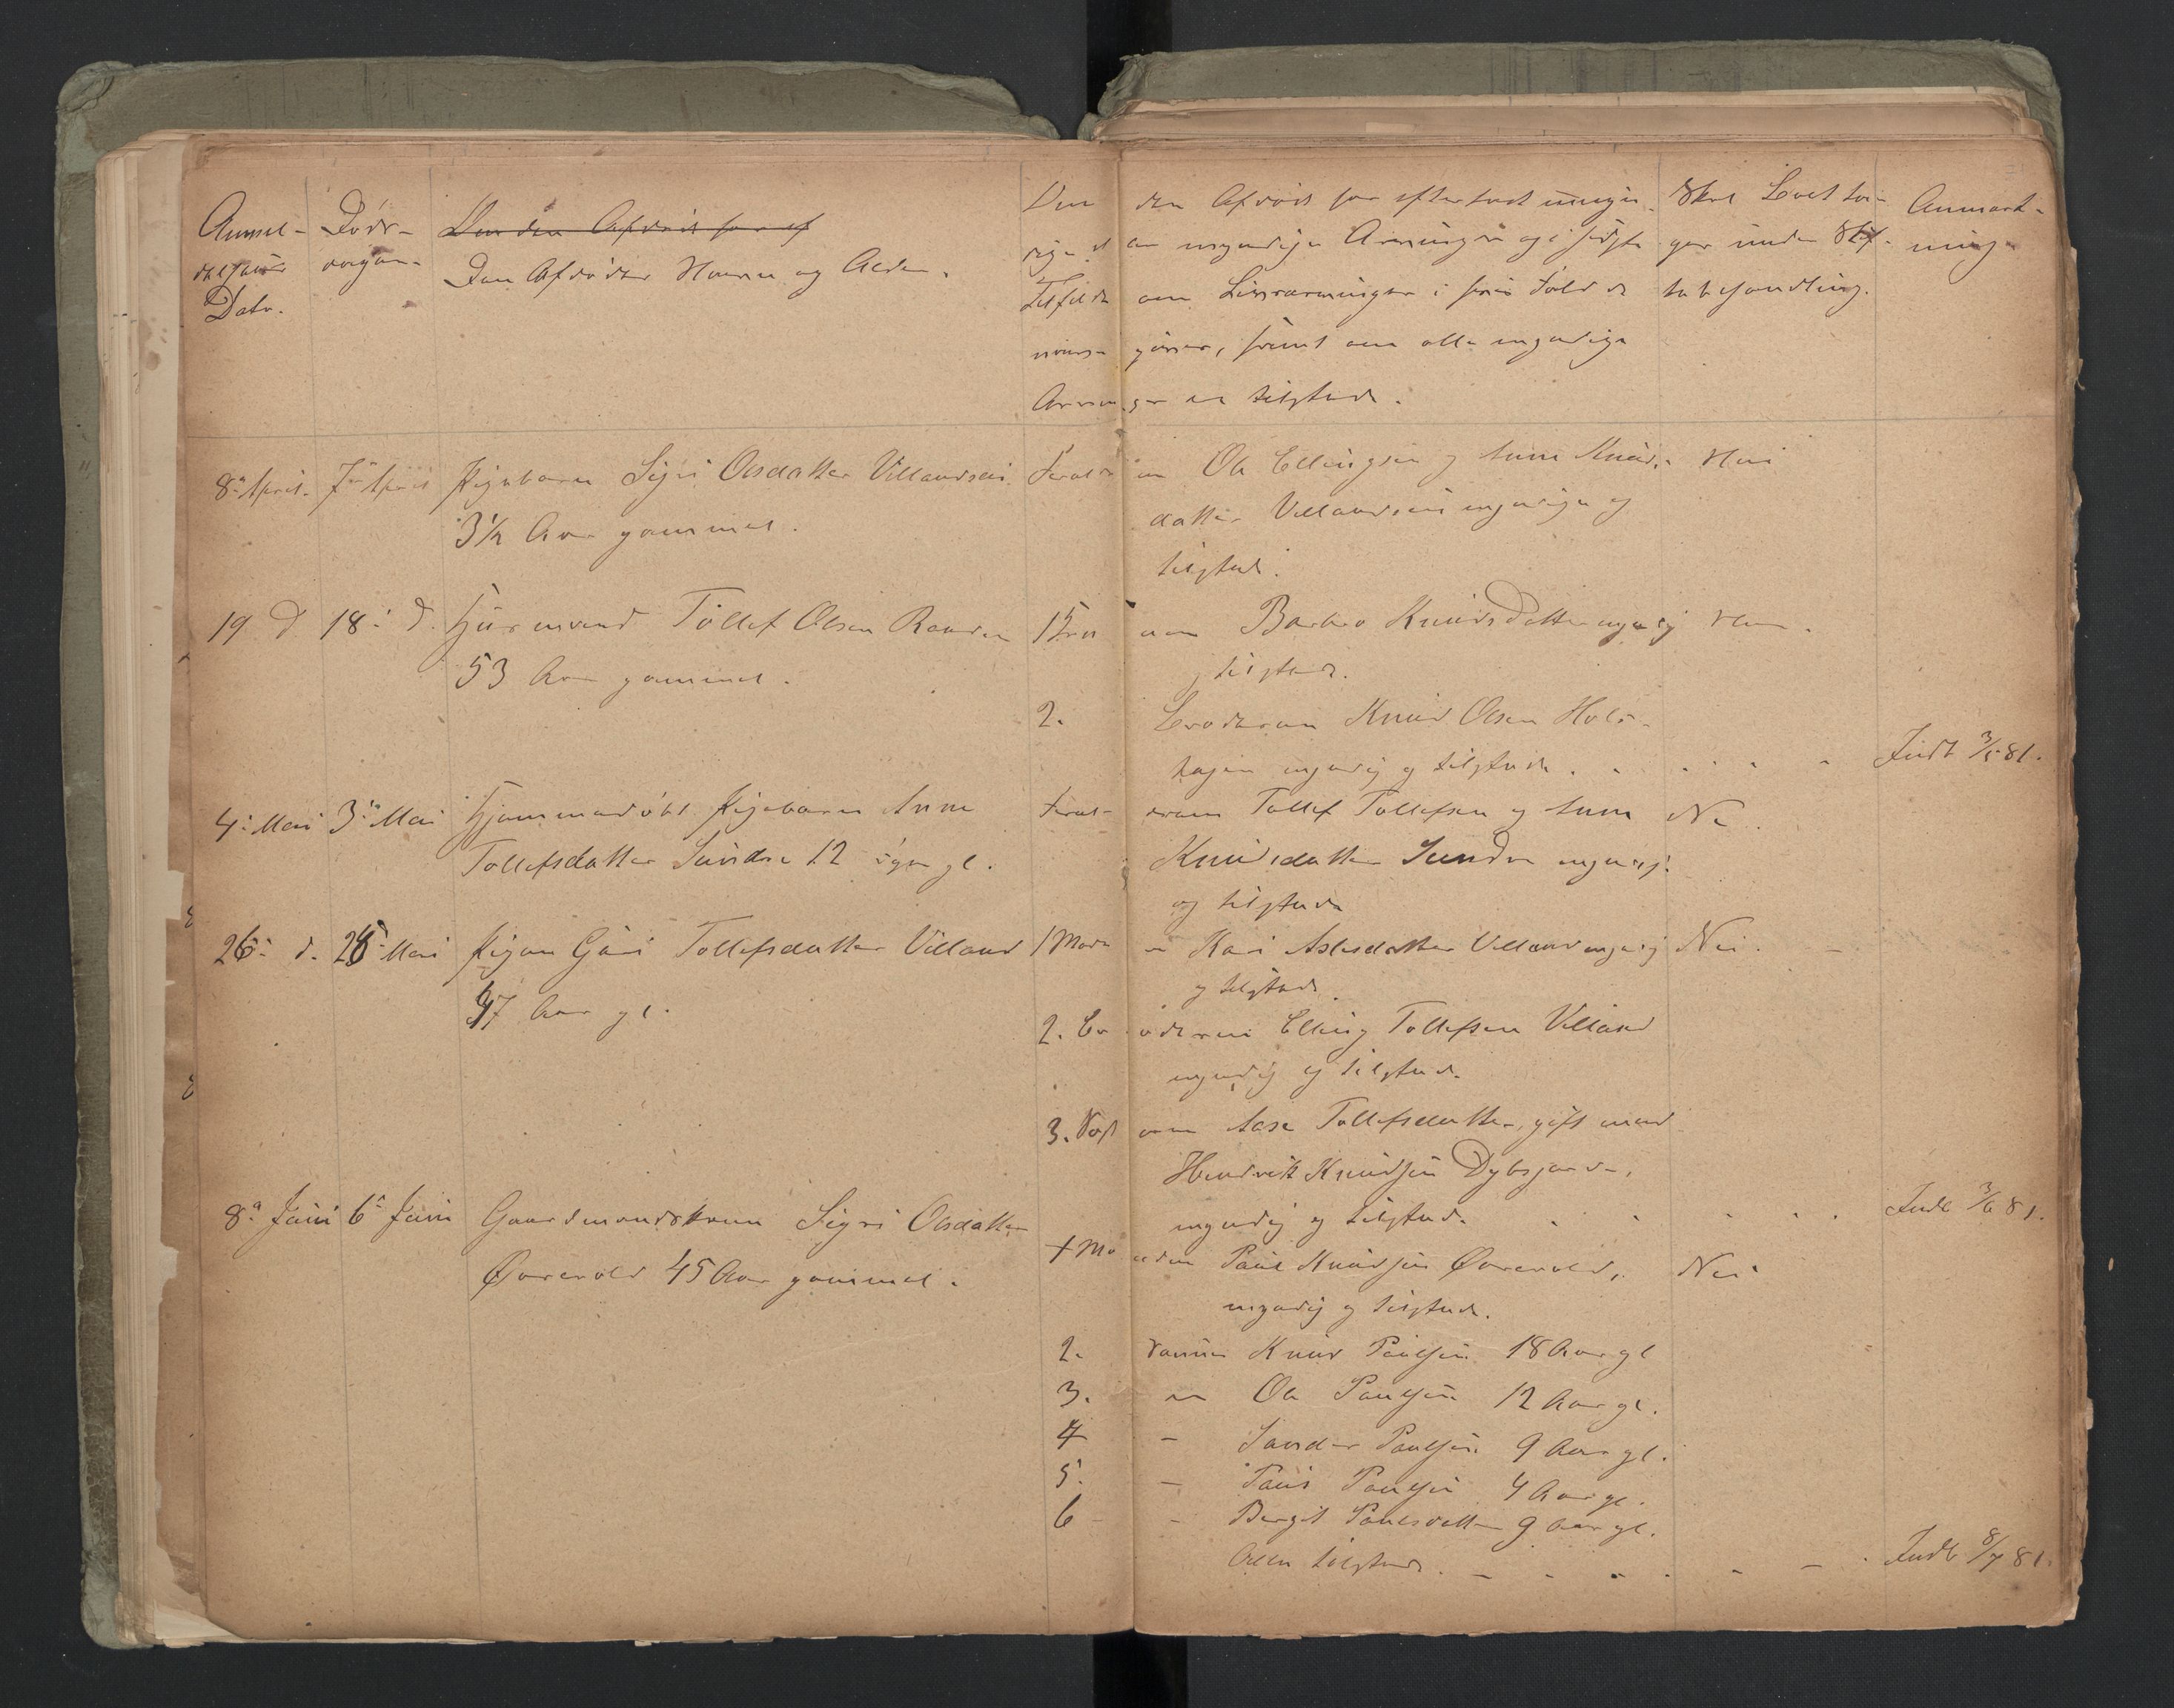 Anmel-
delsens
Dato.
Døds-
dagen.
Har den Afdøde
Den Afdødes Navn og Alder.
Har den Afdøde
umyndige Arvinger og i sidste
Tilfælde om Livsarvinger i
samt om alle myndige
Arvinger er tilstede.
Skal Boet ta-
ges under Skif-
tebehandling.
Anmærk-
ning
8de April. 7de April Pigebarn Sigri Olsdatter Villandseie
3½ Aar gammel.
Forældrene Ole Ellingsen og Anne Knuds-
datter Villandseie myndige og
tilstede.
Nei
19 d 18. d. Huusmand Tollef Olsen
53 Aar gammel.
1 Konen Barbro Knudsdatter myndig
og tilstede.
2. Broderen Knud Olsen
hagen myndig og tilstede.
Indb 3/5 81.
4. Mai 3. Mai Hjemmedøbt Pigebarn Anne
Tollefsdatter Sundre 12 Uger gl.
Forældrene Tollef Tollefsen og Anne
Knudsdatter Sundre myndig
og tilstede
Nei
26. d. 25 Mai Pigen Guri Tollefsdatter Villand
37 Aar gl.
1 Moderen Kari Aslesdatter Villand myndig
og tilstede.
Nei.
2. Broderen Elling Tollefsen Villand
myndig og tilstede.
3. Søsteren Aase Tollefsdatter, gift med
Hendrik Knudsen
myndig og tilstede.
Indb 3/6 81.
8de Juni 6te Juni Gaardmandskone Sigri Olsdatter
Øvrevold 45 Aar gammel.
1 Manden Paul Knudsen Øvrevold,
myndig og tilstede.
Nei
2. Sønnen Knud Paulsen 18 Aar gl
3. Ole Paulsen 12 Aar gl.
4 - Sander Paulsen 9 Aar gl.
5. - Paul Paulsen 4 Aar gl.
6 - Bergit Paulsdatter 9 Aar gl.
Alle tilstede.
Indb 8/7 81.